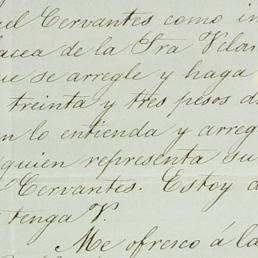 uel Cervantes como in
lacea de la Sra Velar
ue se arregle y haga
treinta y tres pesos d
n lo entienda y arreg
quien representa su
l Cervantes. Estoy a
tenga V.
Me ofresco á la